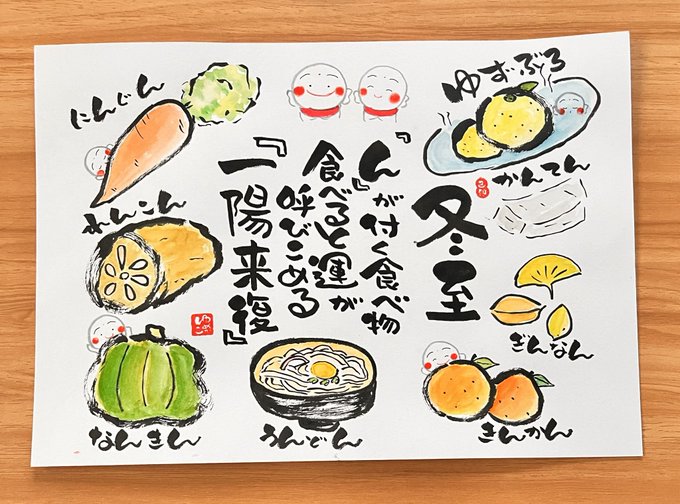 冬至
『ん』が付く食べ物
食べると運が
呼びこめる
『一陽来復』
ゆずぶろ
かんてん
ぎんなん
きんかん
うんどん
なんきん
れんこん
にんじん